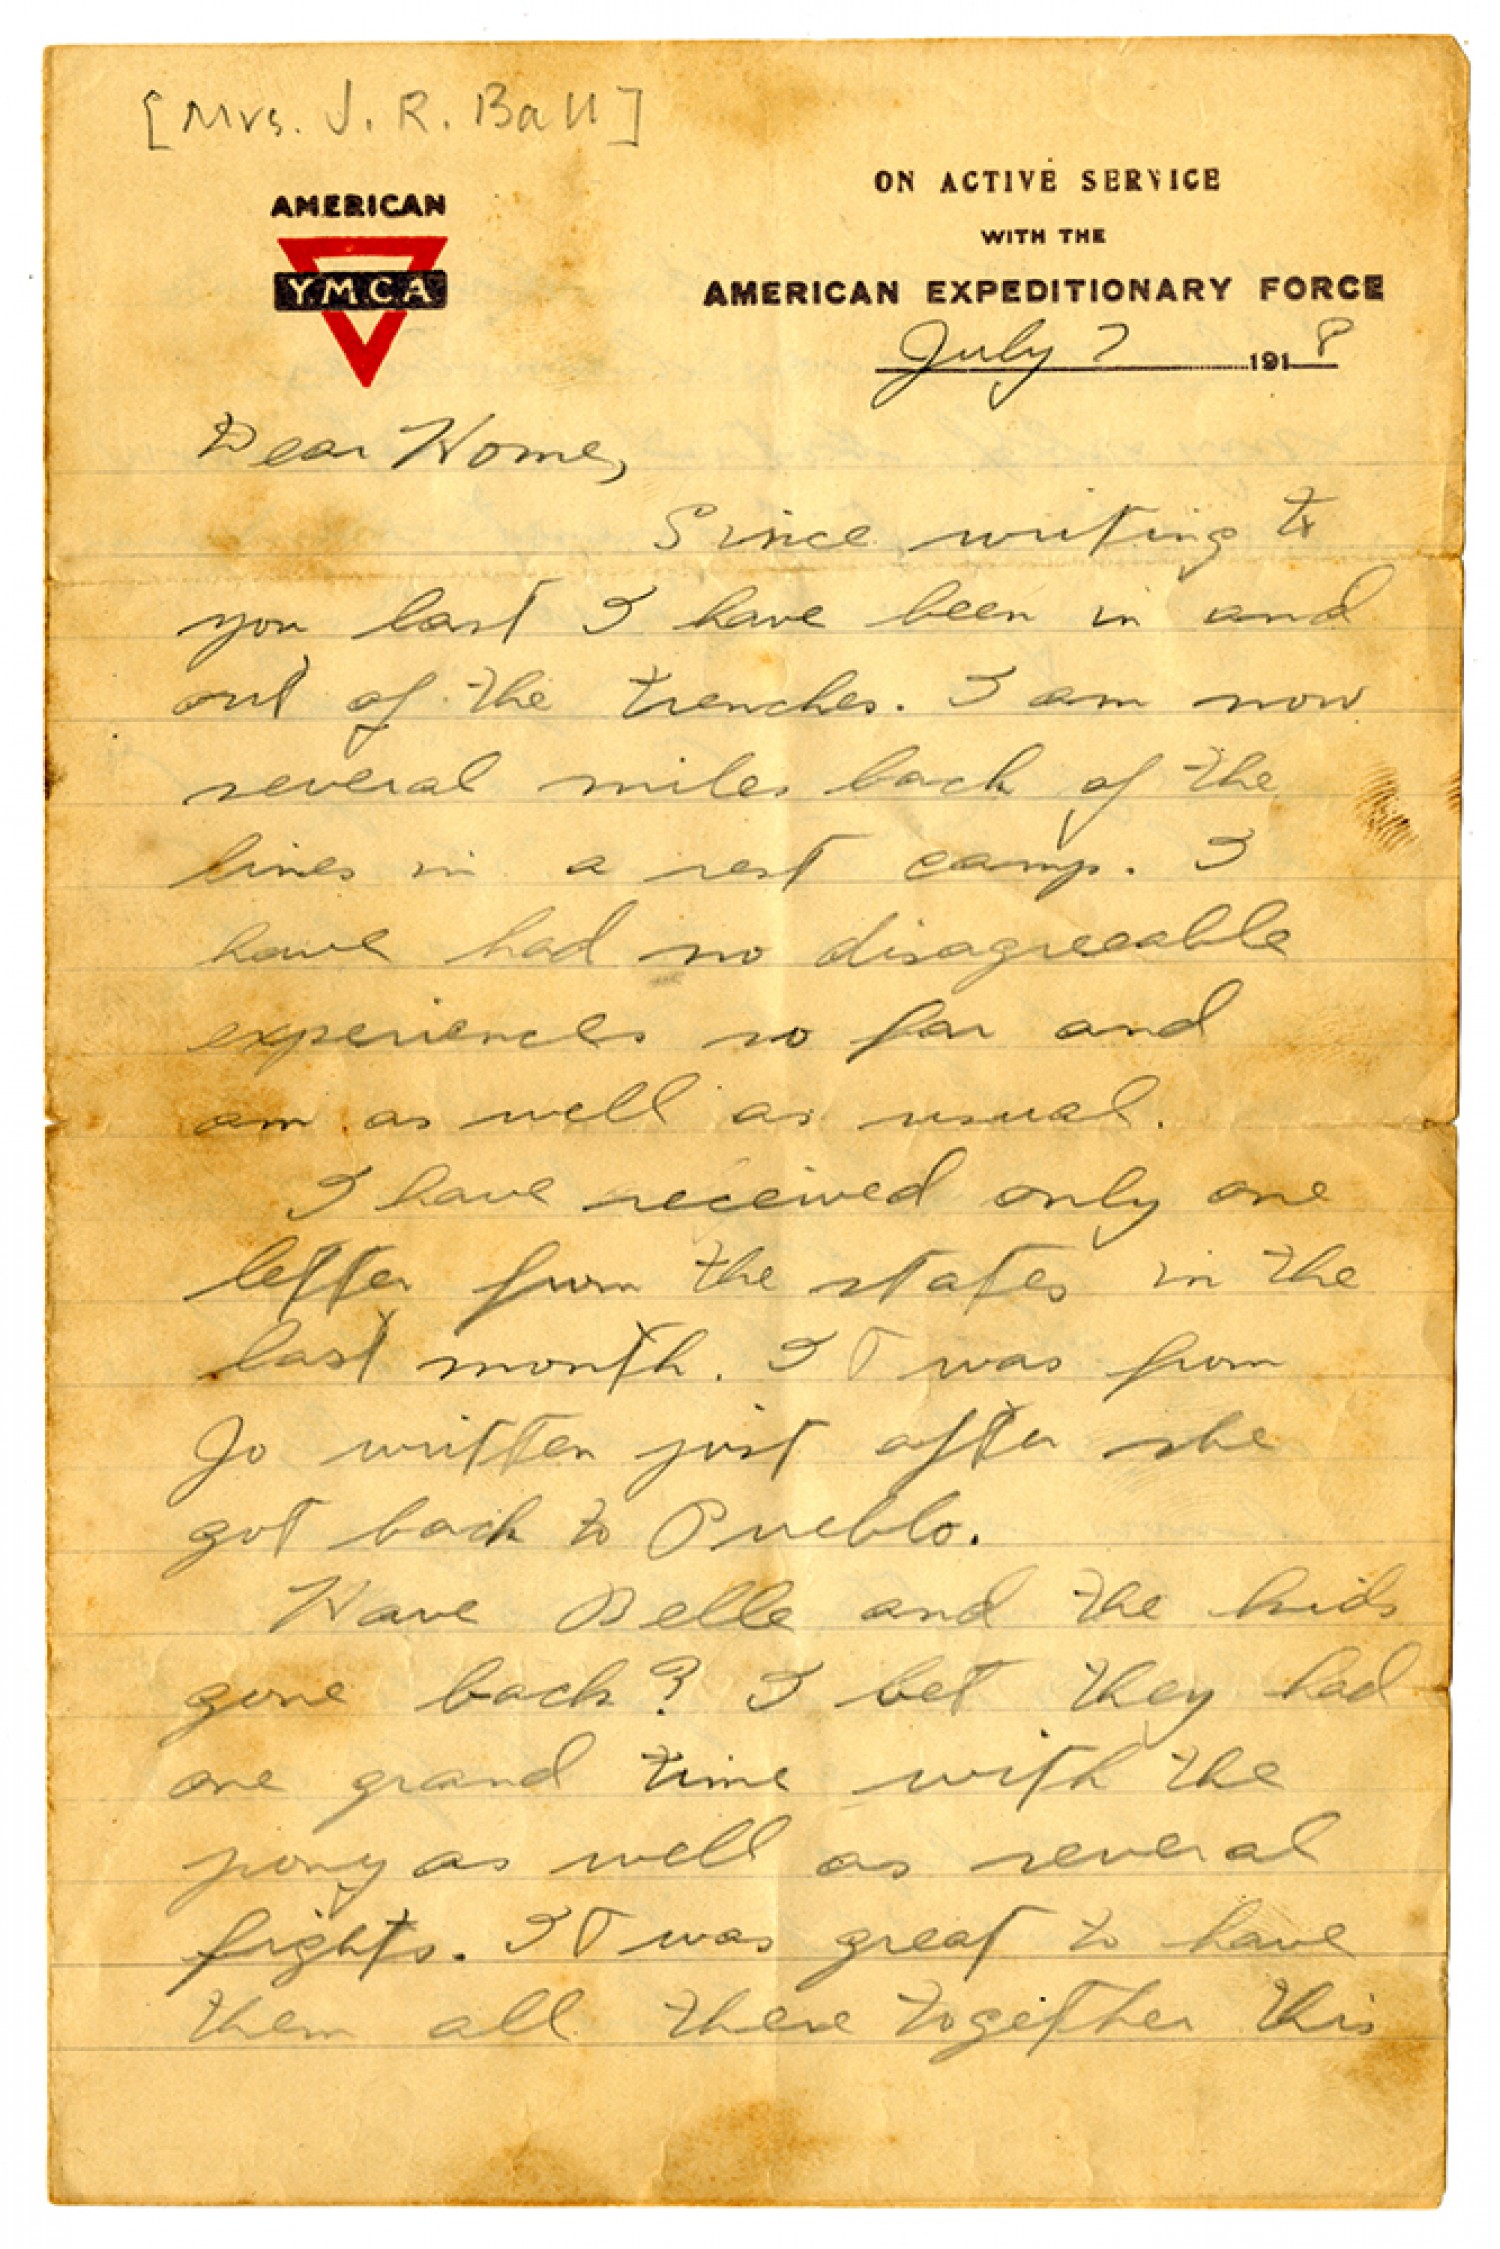 [Mrs. J. R. Ball]
AMERICAN
Y.M.C.A
ON ACTIVE SERVICE
WITH THE
AMERICAN EXPEDITIONARY FORCE
July 7 1918
Dear Home,
Since writing to
you last I have been in and
out of the trenches. I am now
several miles back of the
lines in a rest camp. I
have had no disagreeable
experiences so far and
am as well as usual.
I have received only one
letter from the states in the
last month. It was from
Jo written just after she
got back to Pueblo.
Have Belle and the kids
gone back? I bet they had
one grand time with the
pony as well as several
fights. It was great to have
them all there together this